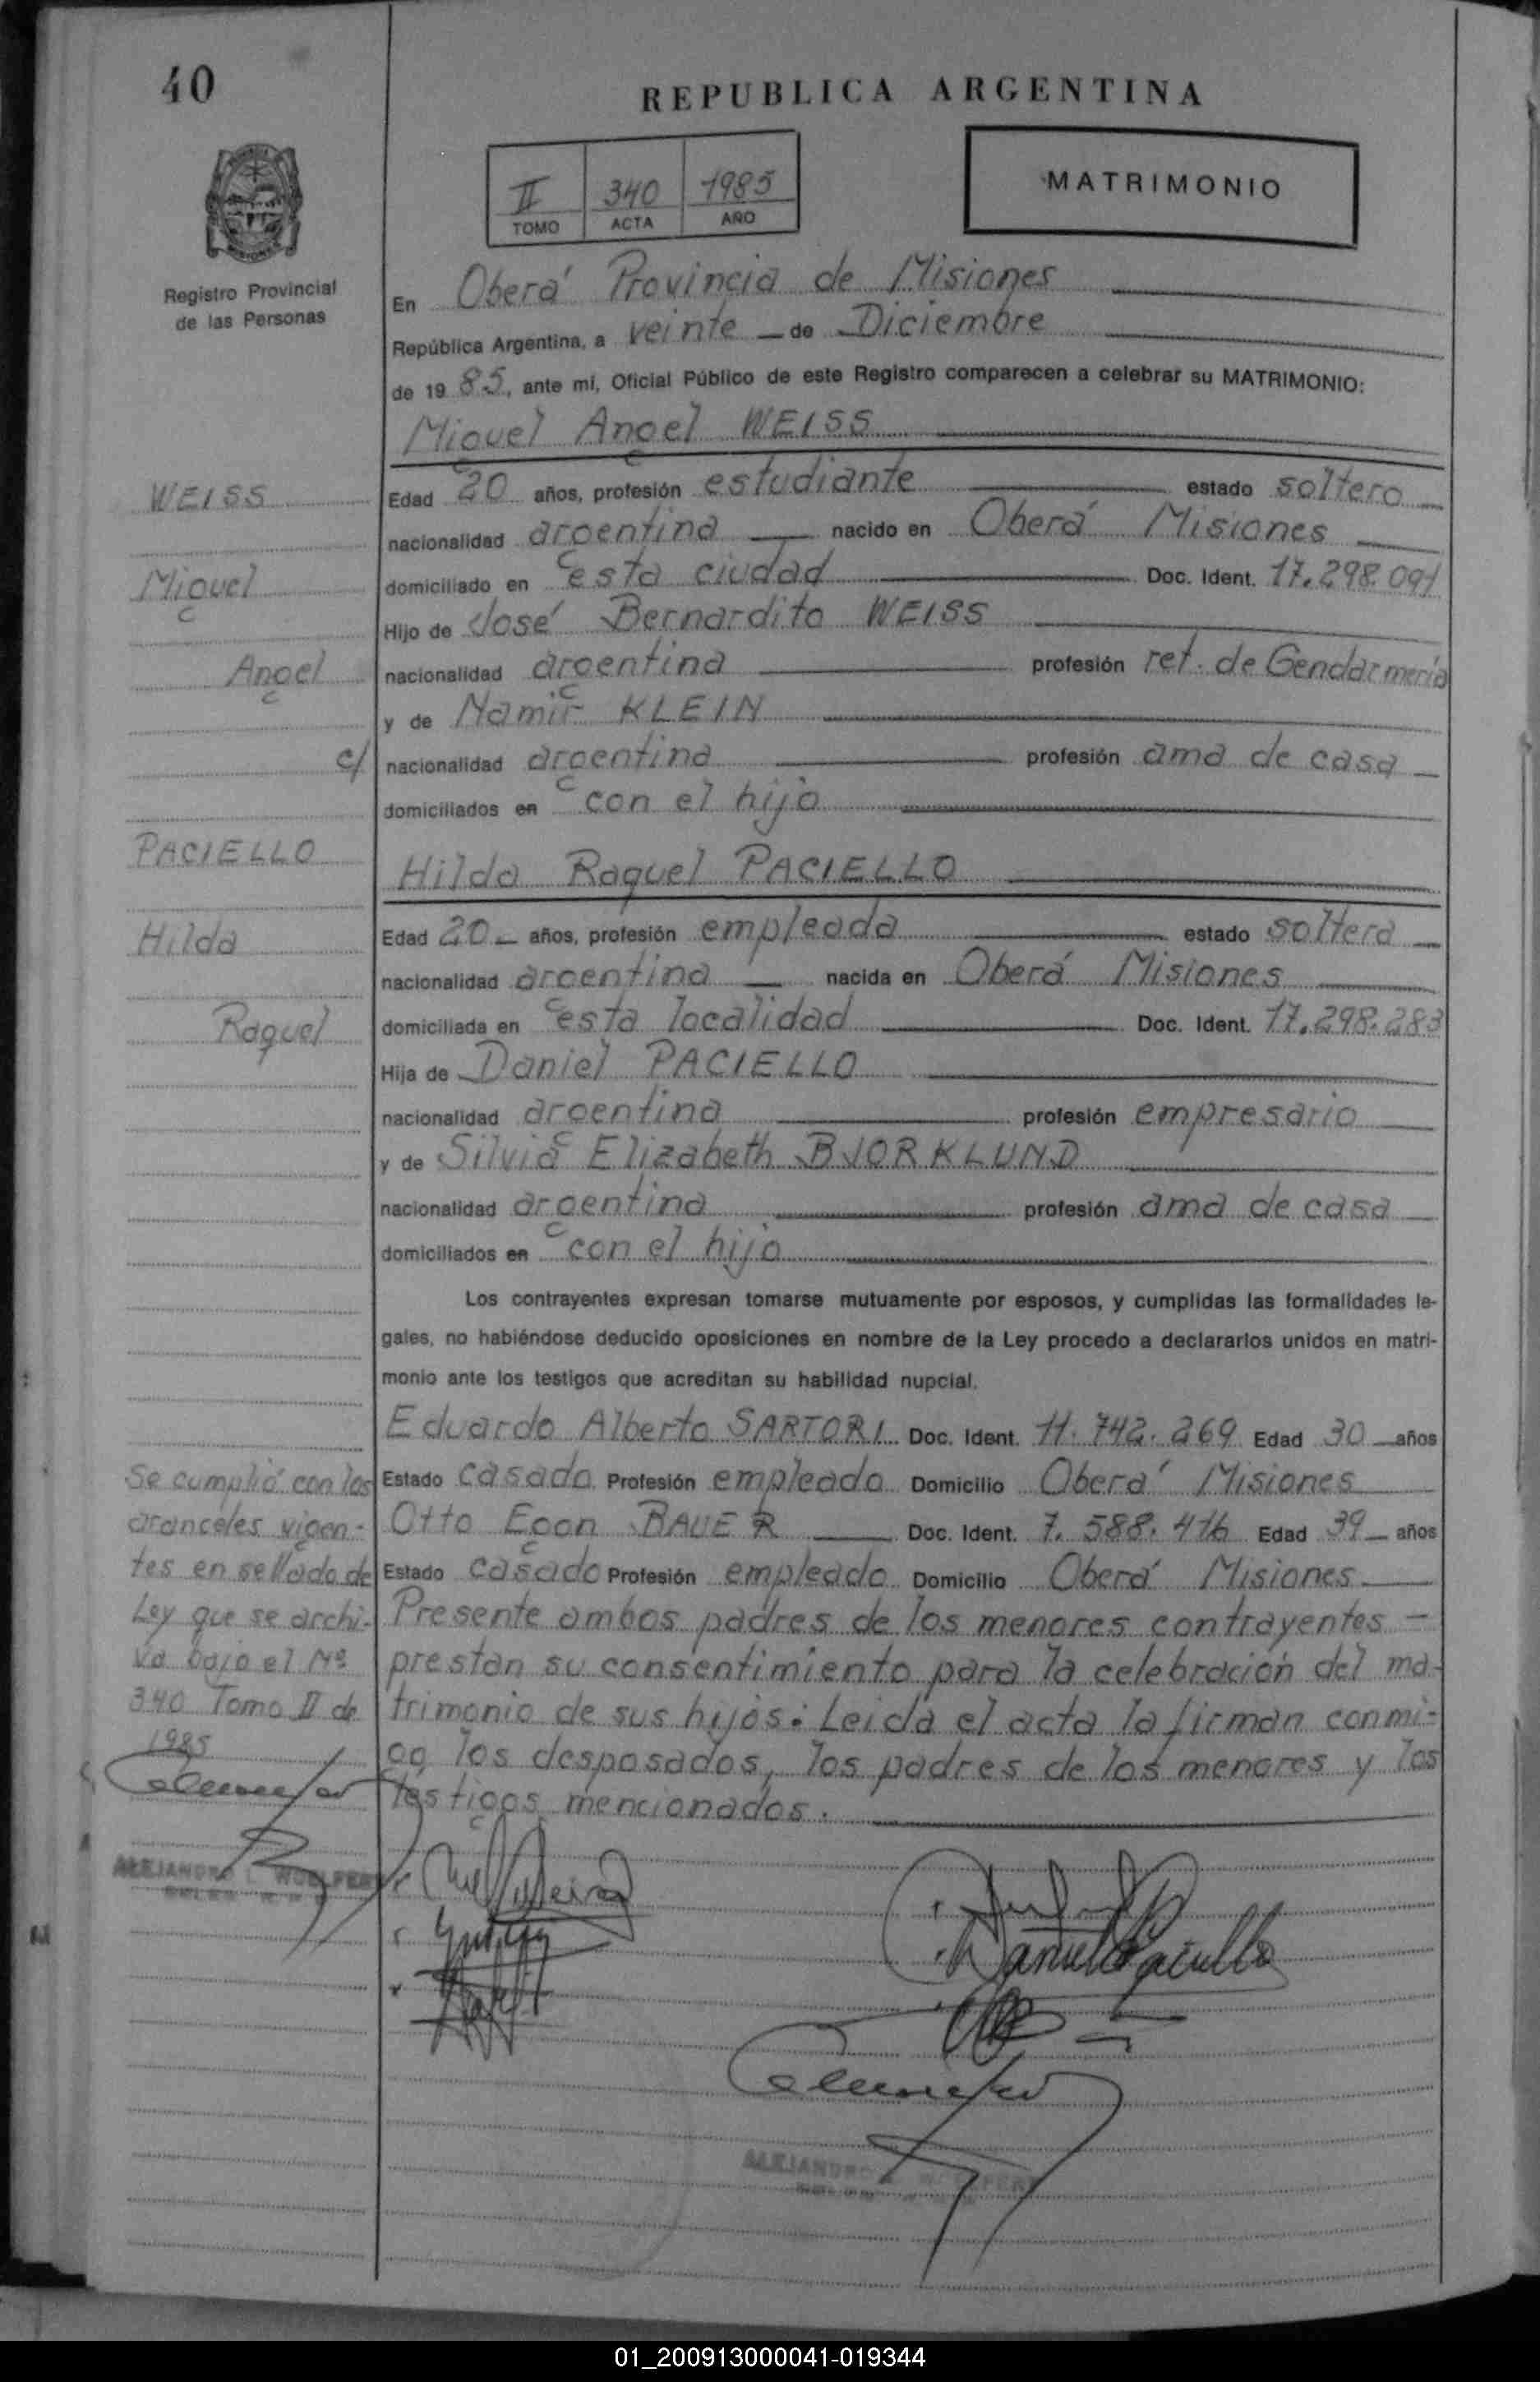 40
REPUBLICA ARGENTINA
II 340 1985
TOMO ACTA AÑO
MATRIMONIO
Registro Provincial
de las Personas
En Oberá Provincia de Misiones
República Argentina, a veinte de Diciembre
de 19 85, ante mí, Oficial Público de este Registro comparecen a celebrar su MATRIMONIO:
Miguel Angel WEISS
WEISS
Edad 20 años, profesión estudiante estado soltero
nacionalidad argentina nacido en Oberá Misiones
Miguel
domiciliado en esta ciudad Doc. Ident. 17.298.091
Hijo de José Bernardito WEISS
Angel
nacionalidad argentina profesión ret. de Gendarmería
y de Namir KLEIN
c/
nacionalidad argentina profesión ama de casa
domiciliados en con el hijo
PACIELLO
Hilda Raquel PACIELLO
Hilda
Edad 20 años, profesión empleada estado soltera
nacionalidad argentina nacida en Oberá Misiones
Raquel
domiciliada en esta localidad Doc. Ident. 17.298.283
Hija de Daniel PACIELLO
nacionalidad argentina profesión empresario
y de Silvia Elizabeth BJORKLUND
nacionalidad argentina profesión ama de casa
domiciliados en con el hijo
Los contrayentes expresan tomarse mutuamente por esposos, y cumplidas las formalidades le-
gales, no habiéndose deducido oposiciones en nombre de la Ley procedo a declararlos unidos en matri-
monio ante los testigos que acreditan su habilidad nupcial.
Eduardo Alberto SARTORI Doc. Ident. 11.742.269 Edad 30 años
Estado casado Profesión empleado Domicilio Oberá Misiones
Otto Egon BAUER Doc. Ident. 7.588.416 Edad 39 años
Estado casado Profesión empleado Domicilio Oberá Misiones
Presente ambos padres de los menores contrayentes -
prestan su consentimiento para la celebración del ma-
trimonio de sus hijos: Leida el acta la firman conmi-
go, los desposados, los padres de los menores y los
testigos mencionados.
Se cumplió con los
aranceles vigen-
tes en sellado de
Ley que se archi-
va bajo el Nº
340 Tomo II de
1985
ALEJANDRO
Daniel Paciello
ALEJANDRO
01_200913000041-019344